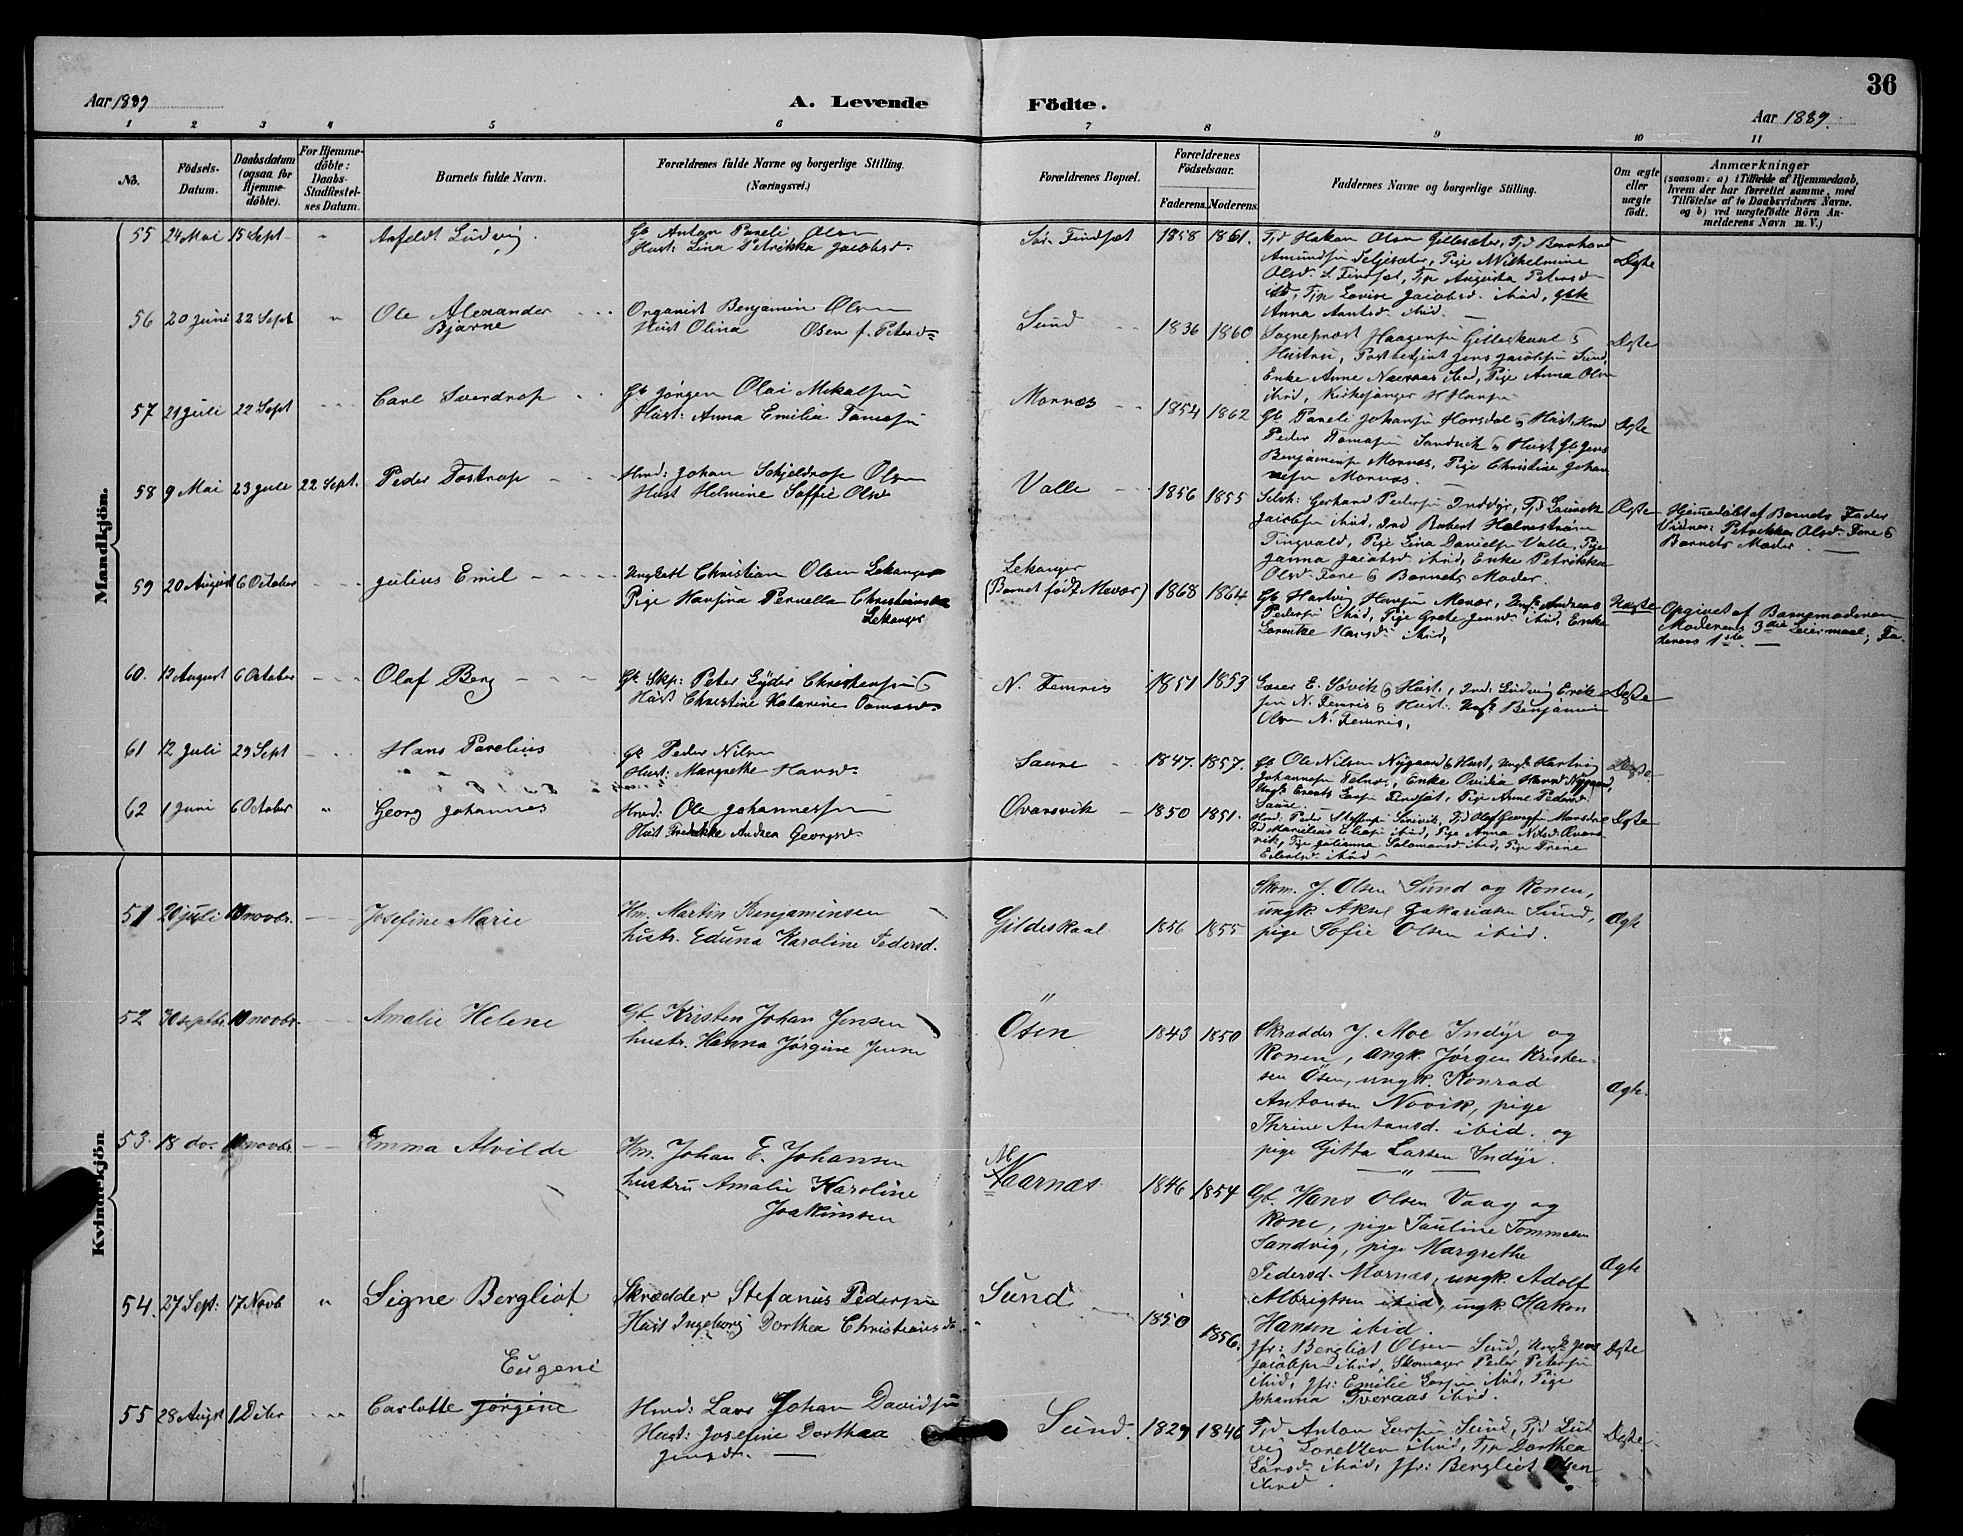 36
Aar 1889
A. Levende Födte.
Aar 1889.
1 2 3 4 5 6 7 8 9 10 11
No.
Födsels-
Datum.
Daabsdatum
(ogsaa for
Hjemme-
döbte).
For Hjemme-
döbte:
Daabs-
Stadfæstel-
ses Datum.
Barnets fulde Navn.
Forældrenes fulde Navne og borgerlige Stilling.
(Næringsvei.)
Forældrenes Bopæl.
Forældrenes
Födselsaar.
Faderens.
Moderens.
Faddernes Navne og borgerlige Stilling.
Om ægte
eller
uægte
født.
Anmærkninger
(saasom: a) i Tilfælde af Hjemmedaab,
hvem der har forrettet samme, med
Tilföielse af to Daabsvidners Navne.
og b) ved uægtefödte Börn An-
melderens Navn m. V.)
Mandkjön.
55 24 Mai 15 Sept Arfeldt Ludvig.
Gb Anton Pareli Olsen
Hust: Lina Petrikka Jacobsd.
Sör. Findsæt 1858 1861.
Tjd Hakon Olsen Gillesæter, Tjd Bernhard
Amundsen Seljesæter, Pige Wilhelmine
Olsd. S. Findsæt, Tjp Augusta Petersd
ibd, Tjp Lovise Jacobsd ibid, Gbk
Anna Arntsd ibid.
Ægte
56 20 Juni 22 Sept " Ole Alexander
Bjarne
Organist Benjamin Olsen
Hust Olina Olsen f. Petersd
Sund 1836 1860
Sogneprest Haagensen Gilleskaal &
Hustru, Postbetjent Jens Jacobsen Sund,
Enke Anne Naeraas ibid, Pige Anna Olsen
ibid, Kirkesanger H Hansen
Ægte
57 21 Juli 22 Sept Carl Sverdrop
Gb Jörgen Olai Mikalsen
Hust: Anna Emilia Tomasen
Mornæs 1854 1862
Gb Pareli Johansen Horsdal & Hust, Hmd
Peder Tomasen Sandvik & Hust, Gb Jens
Benjaminsen Mornæs, Pige Christine Johan
nesen Mornæs.
Ægte
58 9 Mai 23 Juli 22 Sept. Peder Tostrop
Hmd: Johan Schjeldrop Olsen
Hust Helmine Soffie Olsd
Valle 1856 1855
Selvh: Gerhard Pedersen Inddyr, Tjd Laurits
Jacobsen ibid, Ind Robert Holmstrøm
Tingvald, Pige Lina Danielsen Valle, Pige
Janna Jacobsd ibid, Enke Petrikka
Olsd Fore & Barnets Moder.
Ægte
Hjemmedøbt af Barnets Fader
Vidner: Petrikka Olsd. Fore &
Barnets Moder.
59 20 August 6 October Julius Emil
Ungkarl Christian Olsen Lekanger
Pige Hansina Pernella Christensd
Lekanger
Lekanger
(Barnet født Mevær) 1868 1864
Gb Hartvig Hansen Mevær, Ungk Andreas
Pedersen ibid, Pige Grete Jensd ibid, Enke
Lorentse Hansd ibid,
Uægte
Opgivet af Barnemoderen
Moderens 3die Leiermaal, Fa-
derens 1ste.
60. 12 August 6 October Olaf Berg
Gb. Skp: Peter Gyder Christensen &
Hust Christine Katarine Tomasd
N. Femris 1851 1853
Gaser E. Sövik & Hust., Ind: Ludvig Erik
sen N. Femris & Hust: Ungk Benjamin
Olsen N. Femris,
Ægte
61 12 Juli 29 Sept Hans Parelius
Gb Peder Nilsen
Hust: Margrethe Hansd.
Saure 1847. 1857.
Gb Ole Nilsen Nygaard & Hust, Ungk Hartvig
Johannesen Telnes, Enke Ovidia Hansd Nygaard,
Ungk Ernst Larsen Findsæt, Pige Anne Pedersd
Saure.
Ægte
62 1 Juni 6 October " Georg Johannes
Hmd: Ole Johannessen
Hust Fredrikke Andrea Georgsd.
Qvarsvik 1850 1851.
Hmd: Peder Steffensen Sörvik, Tjd Olaf Georgsen Horsdal
Tjd Marielius Eliasen ibid, Pige Anna Nilsd. Qvars
vik, Pige Julianna Salomonsd ibid, Pige Trine
Edvardsd ibid
Ægte
Kvindekjön
51 20 juli 10 novbr. Josefine Marie
Hm. Martin Benjaminsen
hustr. Eduna Karoline Pedersd.
Gildeskaal 1856 1855
Skom. J. Olsen Sund og Konen,
ungk. Aksel Zakariasen Sund,
pige Sofie Olsen ibid.
Ægte
52 30 septbr. 10 novbr. Amalie Helene
Gb. Kristen Johan Jensen
hustr. Hanna Jørgine Jensen
"
Osen 1843 1850
Skrædder J. Moe Indyr og
Konen, ungk. Jörgen Kristen-
sen Osen, ungk. Konrad
Antonsen Novik, pige
Thrine Antonsd. ibid. og
pige Gitta Larsen Indyr.
Ægte.
53. 18 do. 10 novbr. Emma Alvilde
Hm. Johan E. Johansen
hustru Amalie Karoline
Joakimsen
M
Naarnæs 1846 1854
Gb. Hans Olsen Vaag og
Kone, pige Pauline Tommesen
Sandvig, pige Margrethe
Pedersd. Mornæs, ungk. Adolf
Albrigtsen ibid, ungk. Hakon
Hansen ibid.
Ægte
54. 27 Sept: 17 Novb " Signe Bergliot
Skrædder Stefanus Pedersen
Hust Ingeborg Dorthea Christiansd
Sund 1850 1856.
Jfr: Bergliot Olsen Sund, Ungk Jens
Jacobsen ibid, Skomager Peder Petersen
ibid, Jfr: Emilie Larsen ibid, Pige
Johanna Tveraas ibid.
Ægte
Eugeni
55 28 Augst 1 Dcbr Carlotte Jørgine
Hmd: Lars Johan Davidsen
Hust: Josefine Dorthea
Jensdr.
Sund. 1829 1846
Tjd Anton Larsen Sund, Tjd Lud
vig Lorentzen ibid, Tjp Dorthea
Larsd ibid, Jfr: Bergliot Olsen
ibid.
Ægte.